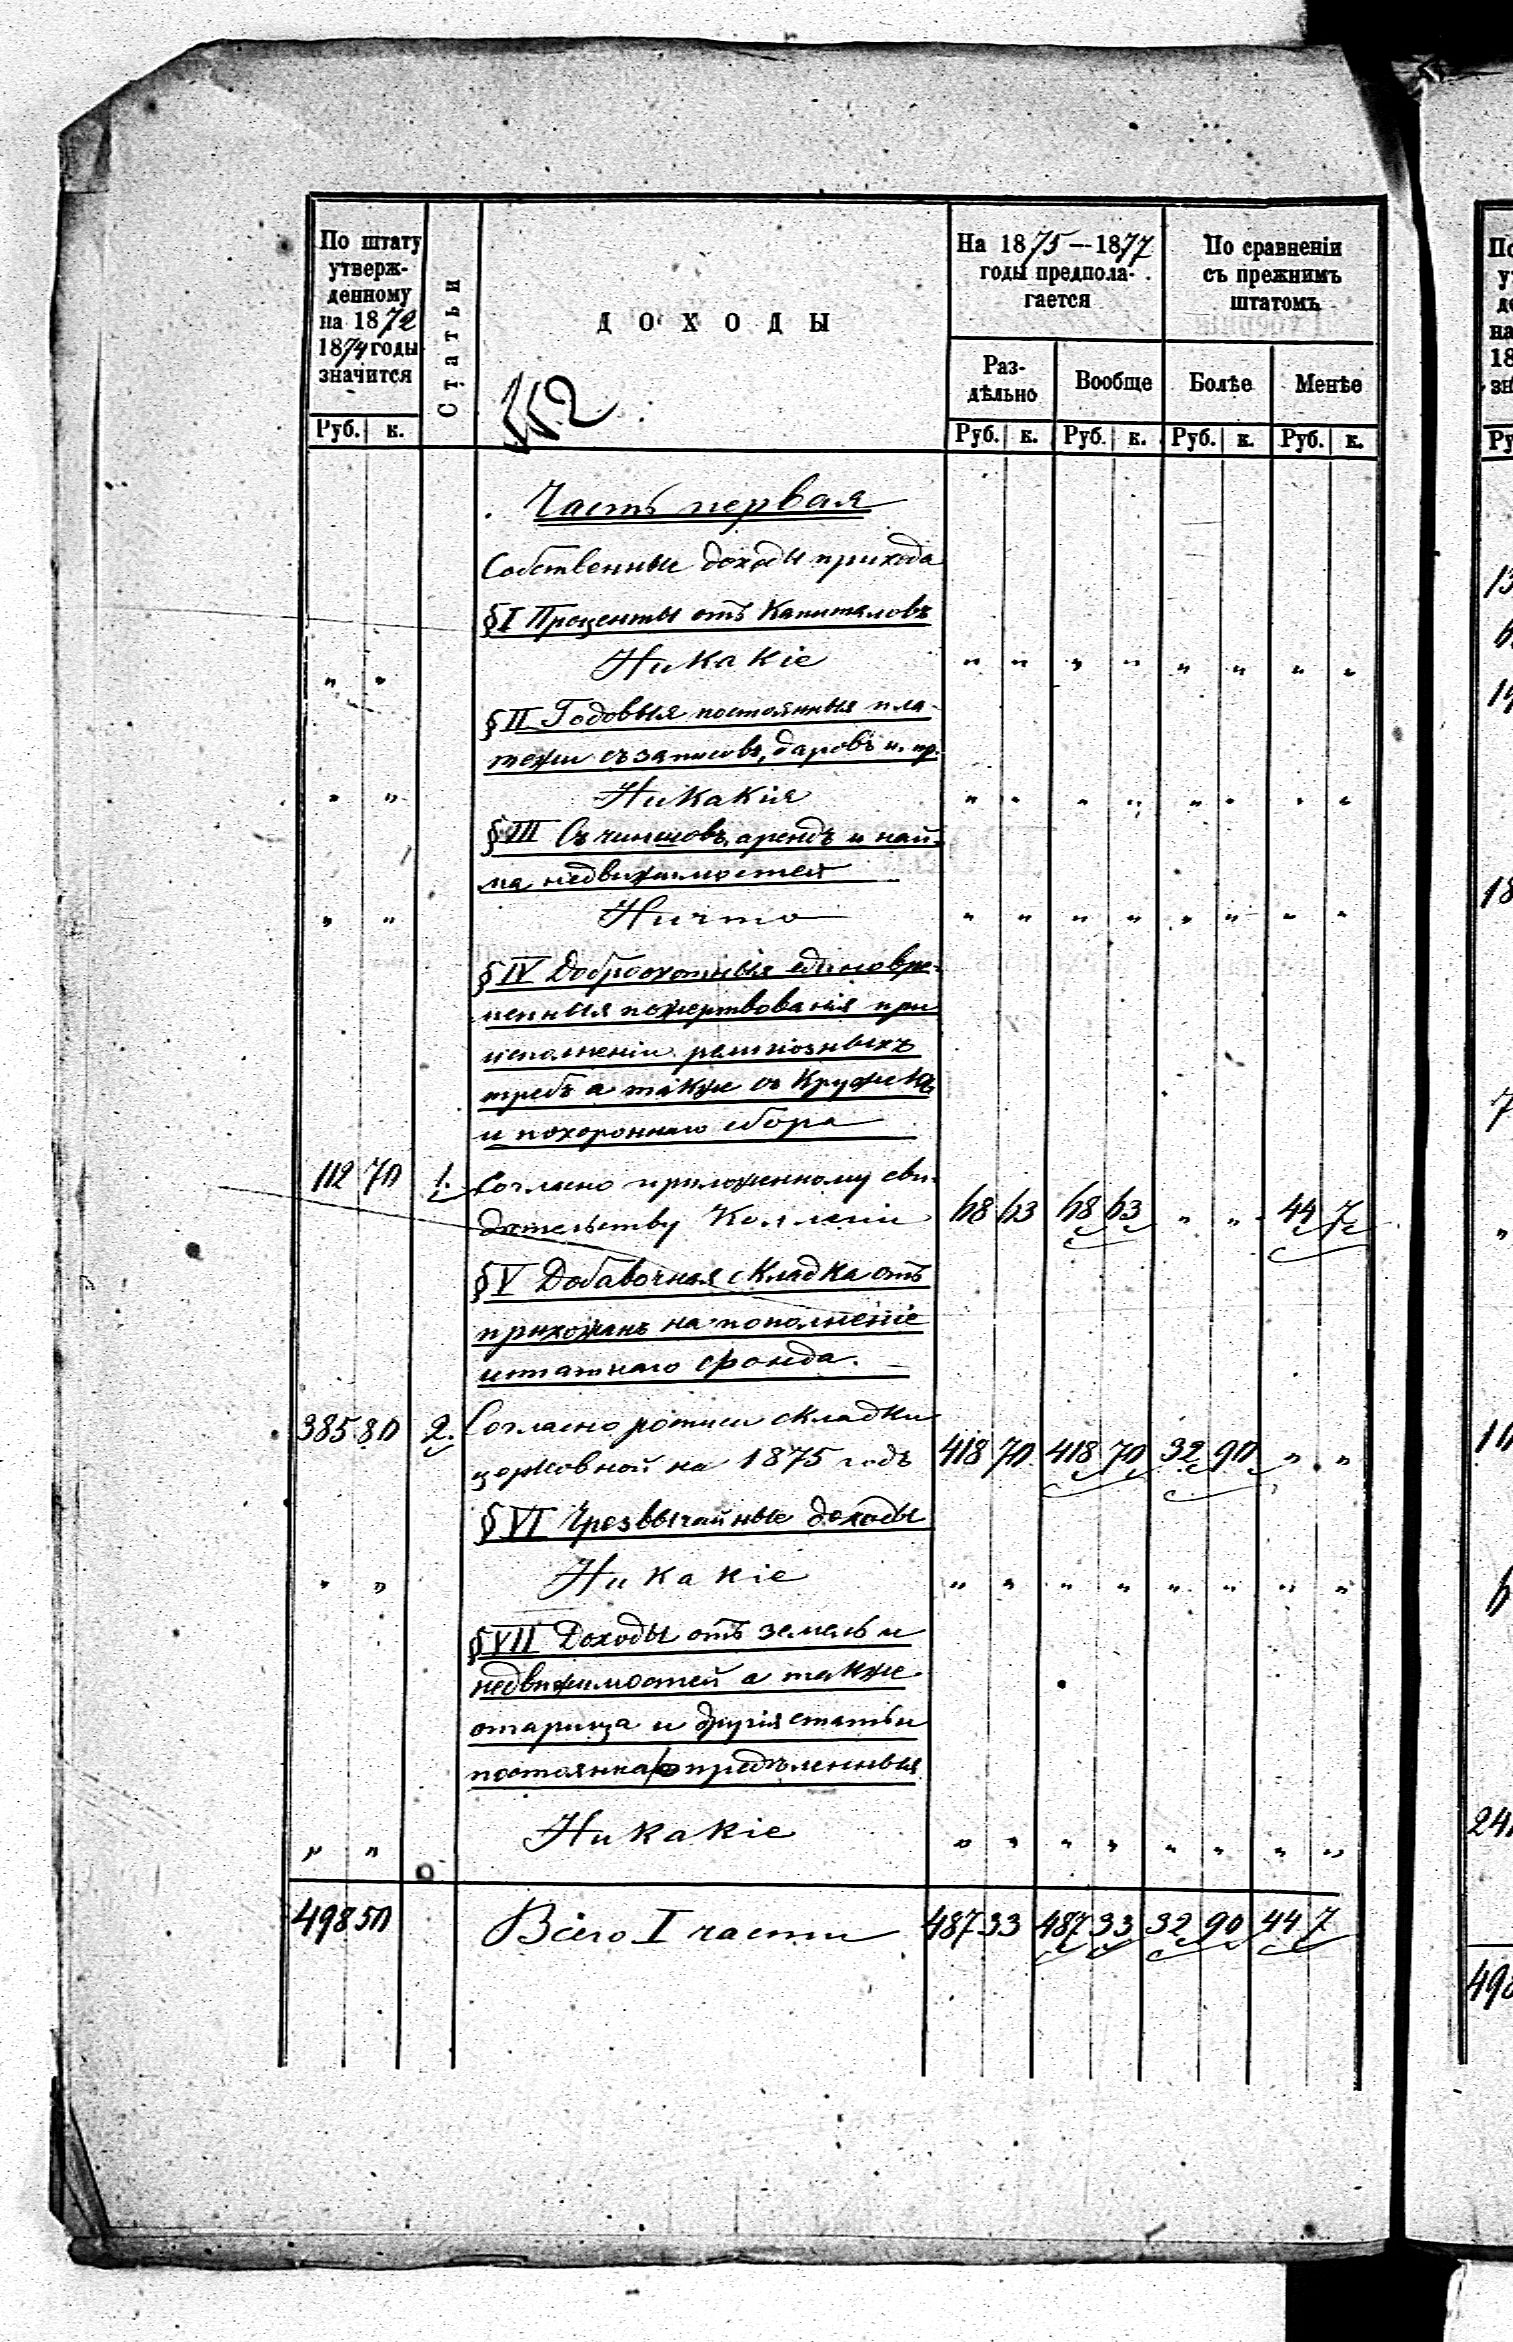 По штату утверж-
денному
на 1872
1874 годы
значится
Руб. к.
Статьи
ДОХОДЫ
На 1875—1877
годы предпола-
гается
Раз-
дѣльно
Вообще
Руб. к. Руб. к.
По сравненіи
съ прежнимъ
штатомъ
Болѣе Менѣе
Руб. к. Руб. к.
Часть первая
Собственные доходы прихода
§ I Проценты отъ Капиталовъ
" " Никакіе " " " " " " " "
§ II Годовыя постоянныя пла-
тежи съ записовъ, даровъ и. пр.
" " Никакія " " " " " " " "
§ III Съ чиншовъ, арендъ и най-
ма недвижимостей
" " Ничто " " " " " " " "
§ IV Доброхотныя единовре-
менныя пожертвованія при
исполненіи религіозныхъ
требъ а также съ Кружекъ
и похороннаго сбора
112 70 1. Согласно приложенному сви-
дѣтельству Коллегіи 68 63 68 63 " " 44 7
§ V Добавочная складка отъ
прихожанъ на пополненіе
штатнаго фонда.
385 80 2. Согласно росписи складки
церковной на 1875 годъ 418 70 418 70 32 90 " "
§ VI Чрезвычайные доходы
" " Никакіе " " " " " " " "
§ VII Доходы отъ земель и
недвижимостей а также
и другія статьи
постоянно опредѣленныя
" " Никакіе " " " " " " " "
498 50 Всего I части 487 33 487 33 32 90 44 7